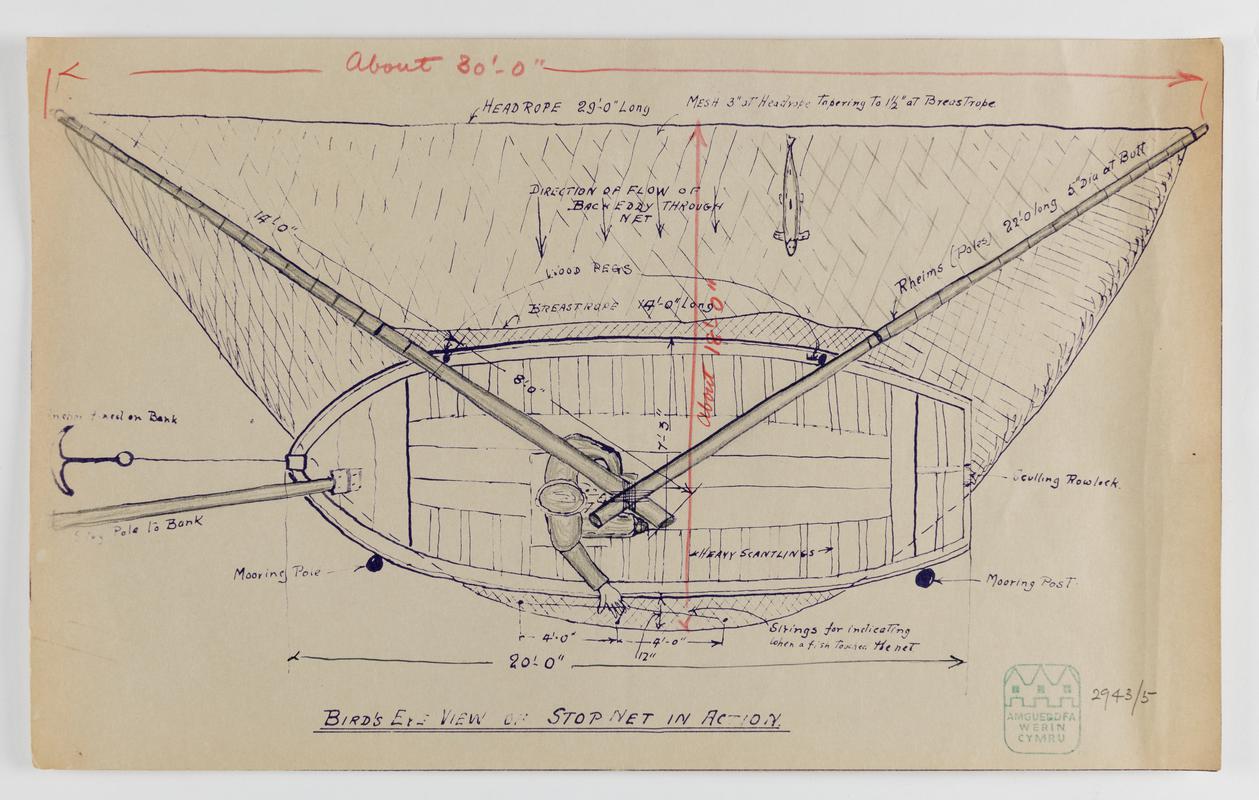 About 30'-0"
HEADROPE 29'-0" Long
MESH 3" at Headrope Tapering To 1½" at Breastrope
DIRECTION OF FLOW OF
BACK EDDY THROUGH
NET
14'-0"
Rheims (Poles) 22'-0 long 5" Dia at Butt
WOOD PEGS
BREASTROPE 14'-0" Long
About 18'-0"
8'-0"
7'-3"
fixed on Bank
Pole To Bank
Sculling Rowlock
HEAVY SCANTLINGS
Mooring Pole
Mooring Post
Strings for indicating
when a fish touches the net
4'-0"
4'-0"
12"
20'-0"
BIRD'S EYE VIEW OF STOP NET IN ACTION.
AMGUEDDFA
WERIN
CYMRU
2943/5